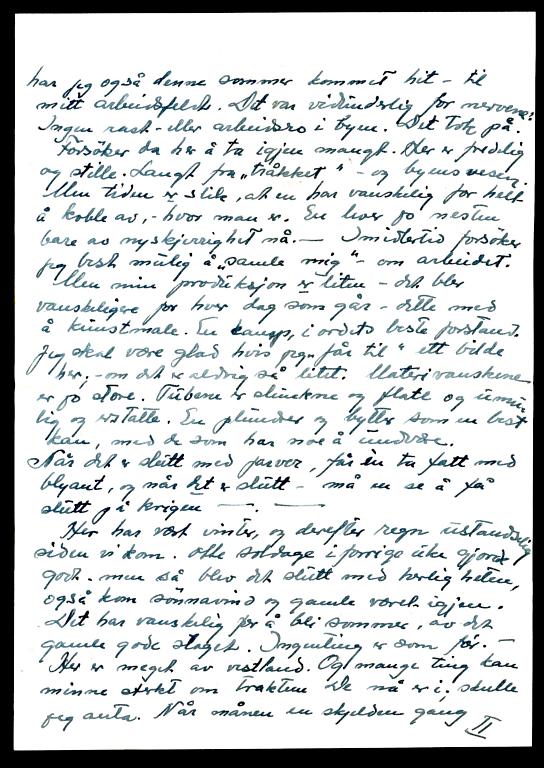 har jeg også denne sommer kommet hit – til
mitt arbeidsfeldt. Det var vidunderlig for nervene!
Ingen rast- eller arbeidsro i byen. Det tok på.
Forsøker da her å ta igjen mangt. Her er fredelig
og stille. Langt fra „tråkket" – og byens vesen.
Men tiden er slik, at en har vanskelig for helt
å koble av, – hvor man er. En lever jo nesten
bare av nyskjerrighet nå. — Imidlertid forsøker
jeg best mulig å „samle mig" – om arbeidet.
Men min produksjon er liten – det blir
vanskeligere for hver dag som går – dette med
å kunstmale. En kamp, i ordets beste forstand.
Jeg skal være glad hvis jeg „får til" ett bilde
her, – om det er aldrig så litet. Materialvanskene
er jo store. Tubene er slunkne og flate og umu-
lig og erstatte. En plundrer og bytter som en best
kan, med de som har noe å undvære.
Når det er slutt med farver, får en ta fatt med
blyant, og når det er slutt – må en se å få
slutt på krigen — . —
Her har vært vinter, og derefter regn ustandselig
siden vi kom. Otte soldage i forrige uke gjorde
godt. men så blev det slutt med herligheten,
også kom sønnavind og gamle været igjen.
Det har vanskelig for å bli sommer, av det
gamle gode slaget. Ingenting er som før. –
Her er meget av vestland. Og mange ting kan
minne sterkt om trakten De nå er i, skulle
jeg anta. Når månen en skjelden gang
II